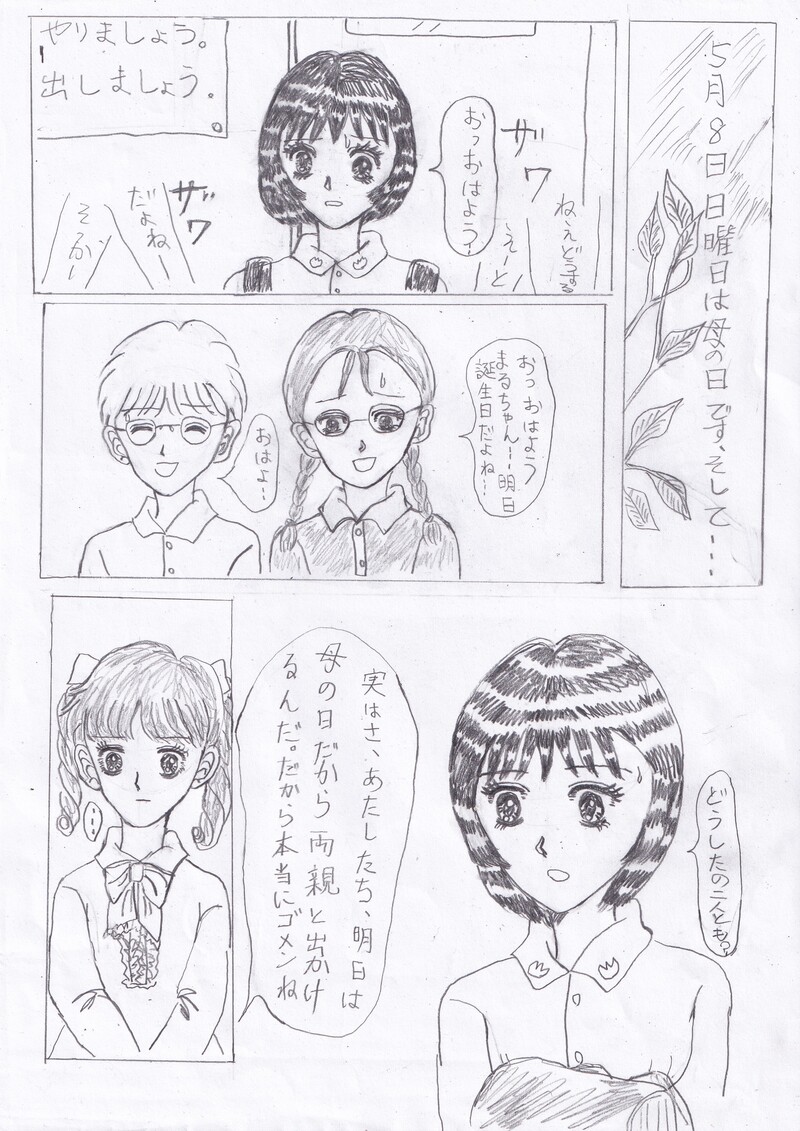 5月8日日曜日は母の日です、そして…
やりましょう。
出しましょう。
ザワ
ねぇどうする
えーと
おっおはよう!
ザワ
だよねー
そっかー
おっおはよう
まるちゃん…明日
誕生日だよね…
おはよー
どうしたの二人とも?
実はさ、あたしたち、明日は
母の日だから両親と出かけ
るんだ。だから本当にゴメンね
…